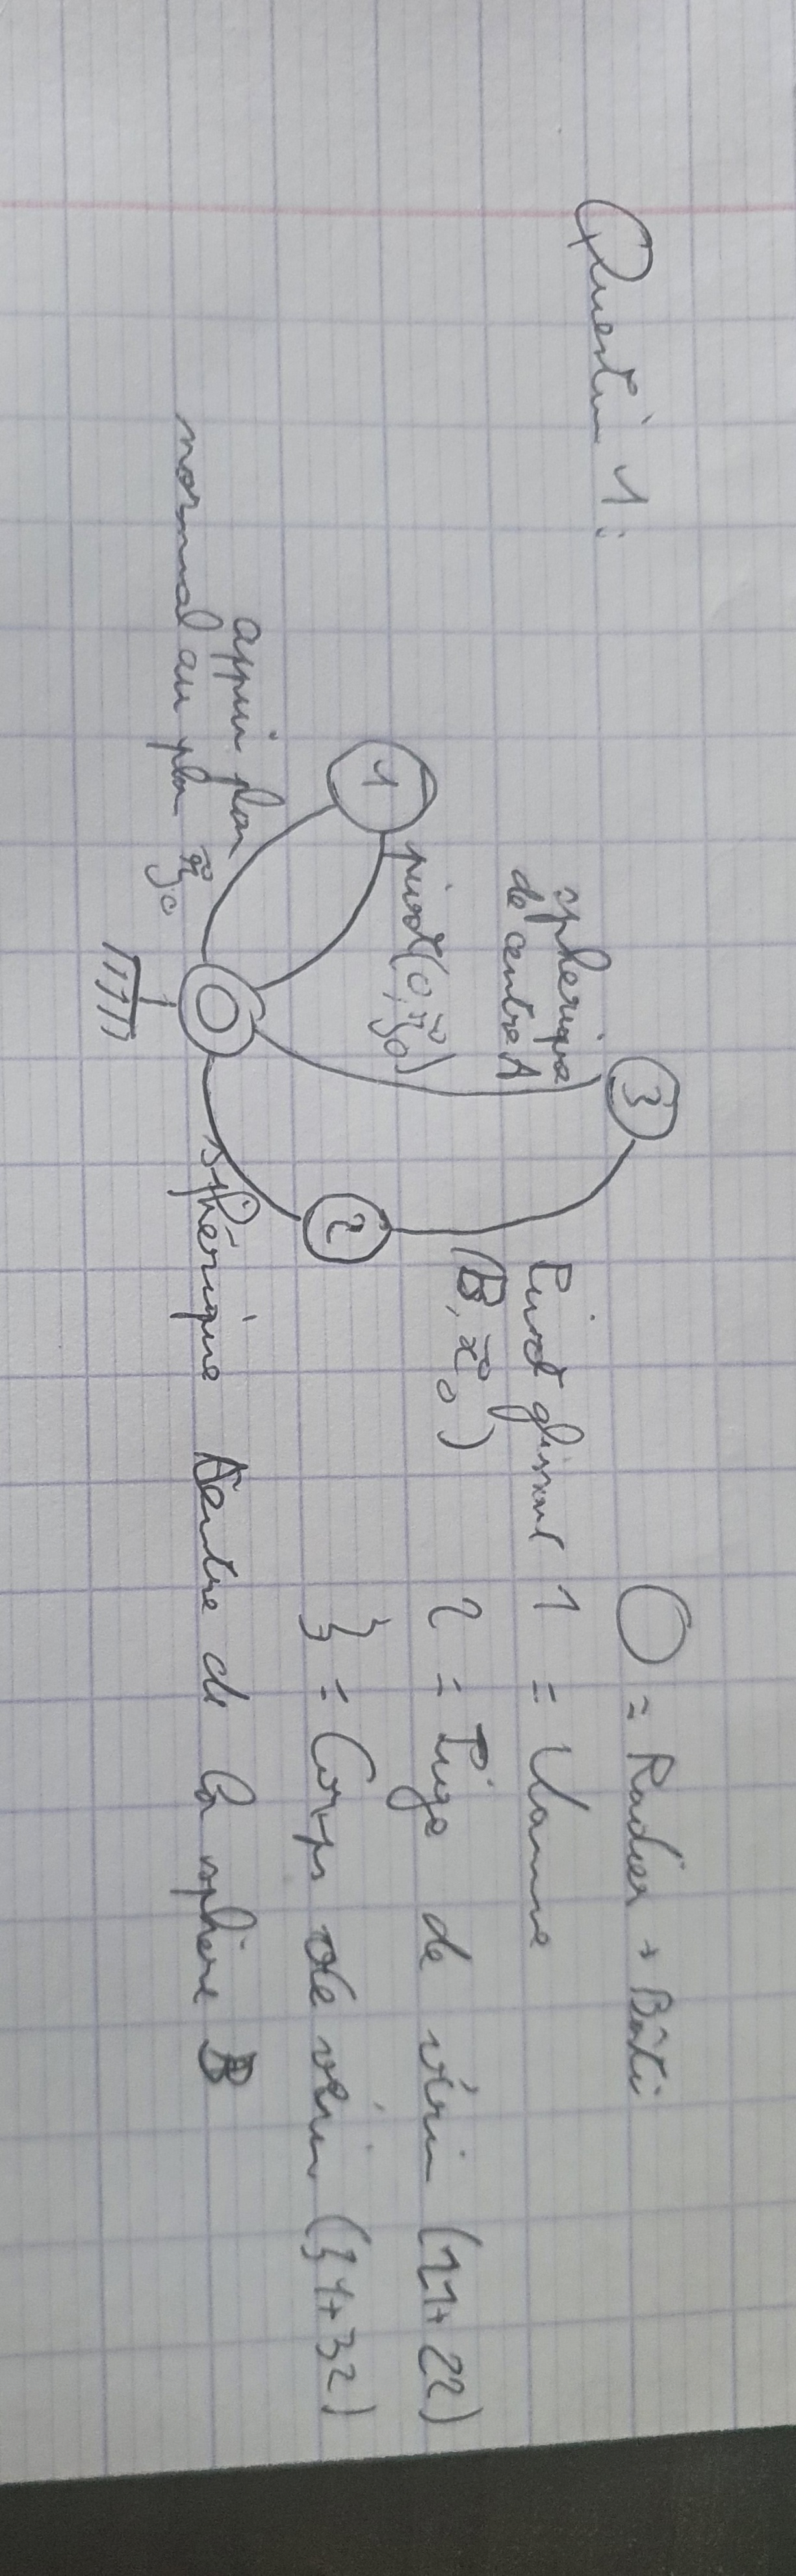 Question 1:
3
spherique
de centre A
Pivot glissant
(B, x⃗₀)
1
pivot (0, y⃗₀)
2
appui plan
normal au plan y⃗₀
0
sphérique Centre de la sphère B
0 = Radier + Bâti
1 = Vanne
2 = Tige de vérin (21+22)
3 = Corps de vérin (31+32)